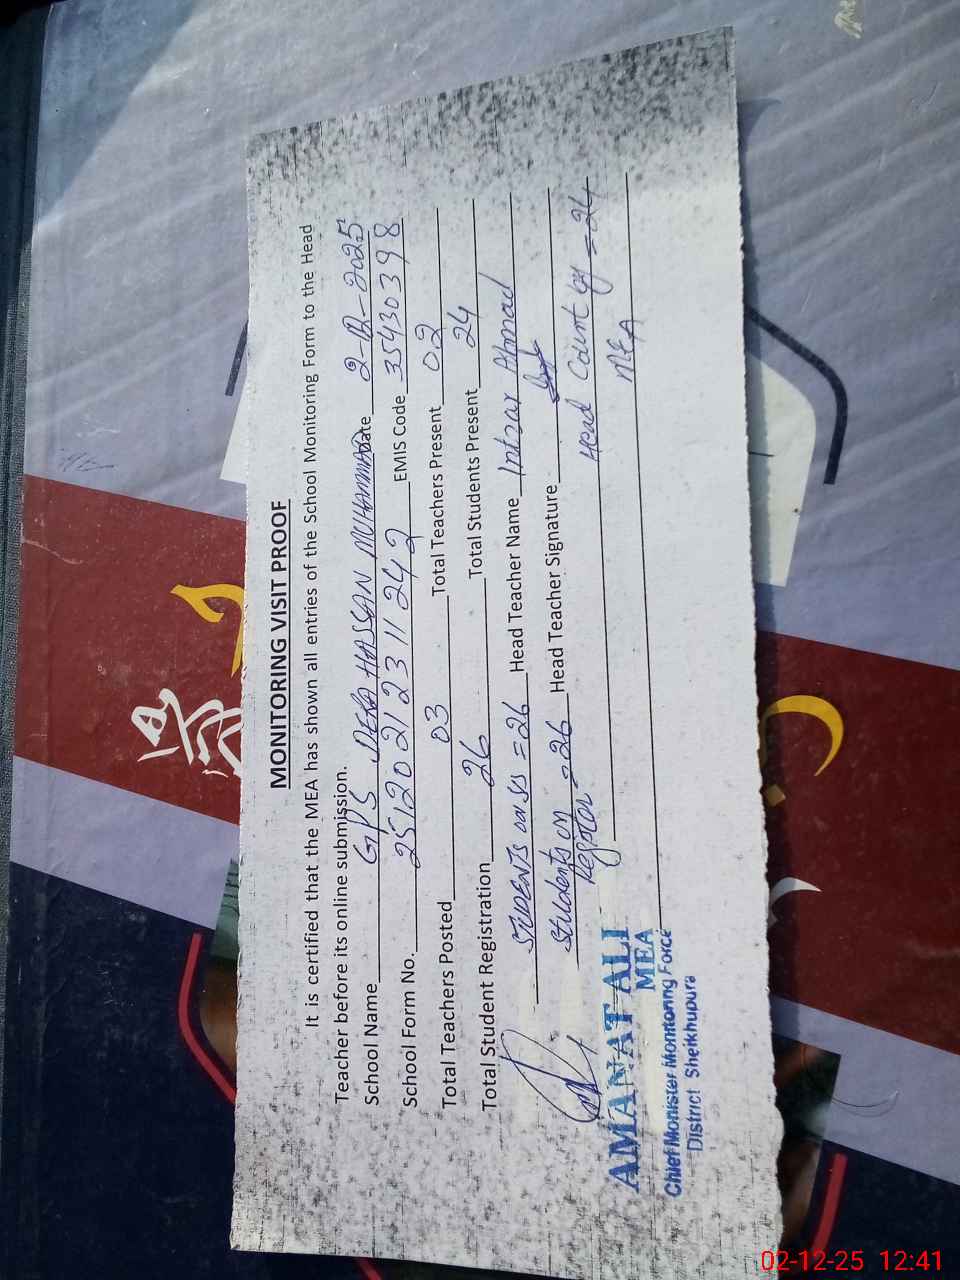 MONITORING VISIT PROOF
It is certified that the MEA has shown all entries of the School Monitoring Form to the Head
Teacher before its online submission.
School Name GPS DERA HASSAN MUHAMMAD Date 2-12-2025
School Form No. 2512021231124 2 EMIS Code 35430398
Total Teachers Posted 03 Total Teachers Present 02
Total Student Registration 26 Total Students Present 24
STUDENTS on SIS = 26 Head Teacher Name Intzar Ahmad
Students on = 26 Head Teacher Signature
Register Head Count by = 24
MEA
AMANAT ALI
MEA
Chief Monister Monitoring Force
District Sheikhupura
02-12-25 12:41